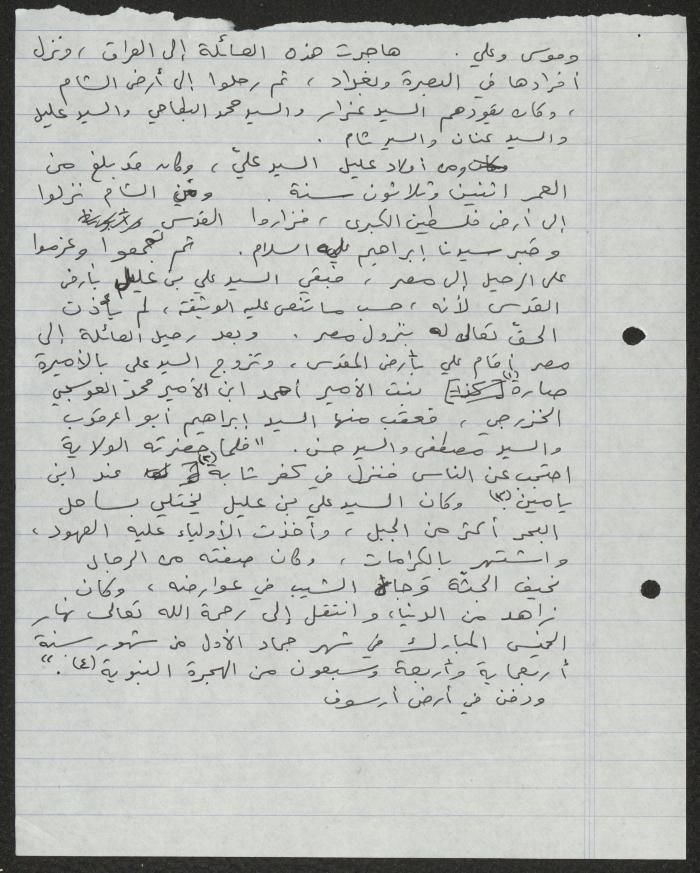 وموسى وعلي . هاجرت هذه العائلة إلى العراق ، ونزل
أفرادها في البصرة وبغداد ، ثم رحلوا إلى أرض الشام
، وكان يقودهم السيد عنزار والسيد محمد البطاحي والسيد عليل
والسيد عنان والسيد شام .
ومن أولاد عليل السيد عليّ ، وكان قد بلغ من
العمر اثنين وثلاثون سنة . ومن الشام نزلوا
إلى أرض فلسطين الكبرى ، فزاروا القدس
وقبر سيدنا إبراهيم عليه السلام . ثم تجمعوا وعزموا
على الرحيل إلى مصر ، فبقي السيد علي بن عليل بأرض
القدس لأنه ، حسب ما تنص عليه الوثيقة ، لم يأذن
الحقّ تعالى له بنزول مصر . وبعد رحيل العائلة إلى
مصر أقام علي بأرض المقدس ، وتزوج السيد علي بالأميرة
صارة (١) بنت الأمير أحمد ابن الأمير محمد العوسجي
الخزرجي ، فعقب منها السيد إبراهيم أبو اعرقوب
والسيد مصطفى والسيد حسن . "فلما حضرته الولاية
احتجب عن الناس فنزل في كفر شابة (٢) عند ابن
يامين (٣) وكان السيد علي بن عليل يختلي بساحل
البحر أكثر من الجبل ، وأخذت الأولياء عليه العهود ،
واشتهر بالكرامات ، وكان صفته من الرجال
نحيف الجثّة وحاز الشيب في عوارضه ، وكان
زاهد من الدنيا ، وانتقل إلى رحمة الله تعالى نهار
الخميس المبارك في شهر جماد الأول من شهور سنة
أربعماية وأربعة وسبعون من الهجرة النبوية (٤) ."
ودفن في أرض أرسوف